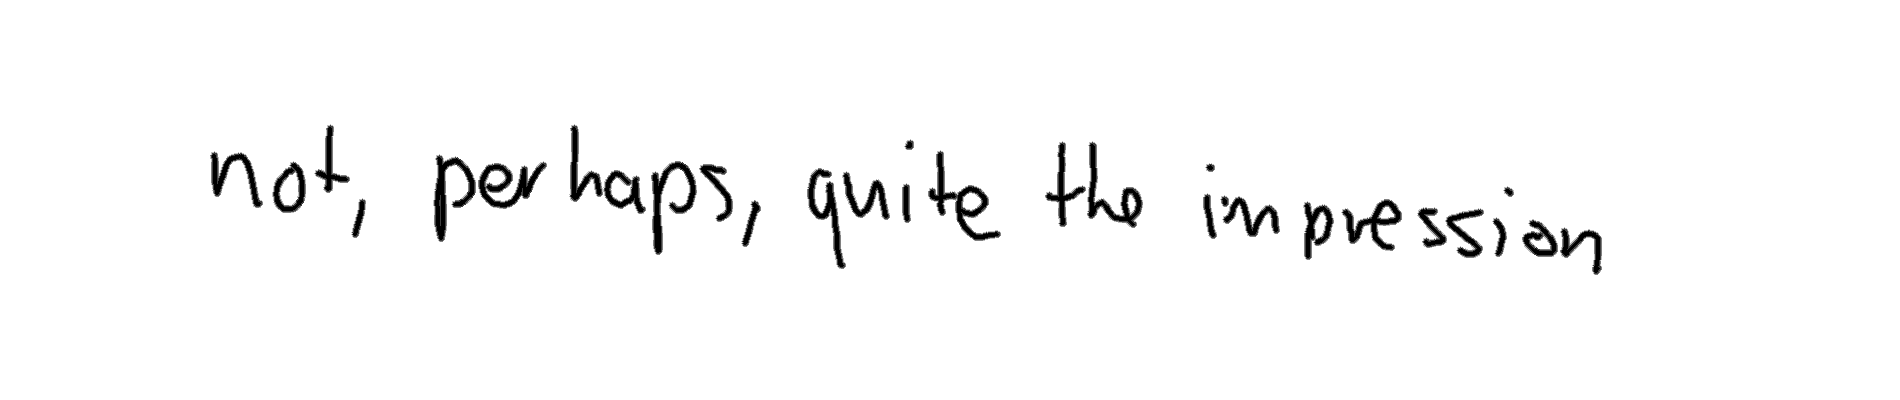 not, perhaps, quite the impression